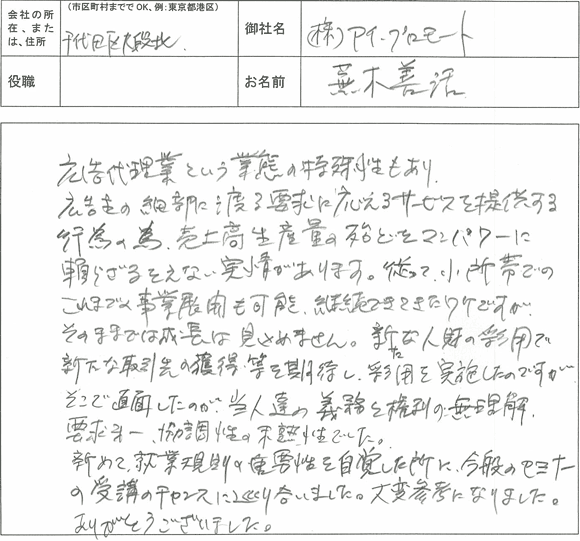 会社の所在、または、住所
(市区町村まででOK、例：東京都港区)
千代田区九段北
御社名
(株)アイ・プロモート
役職
お名前
蕪木善活
広告代理業という業態の特殊性もあり、
広告主の細部に渡る要求に応えるサービスを提供する
行為の為、売上高生産量の殆どをマンパワーに
頼らざるをえない実情があります。従って、小所帯での
これまでの事業展開も可能、継続できてきたワケですが、
そのままでは成長は見込めません。新たな人財の採用で
新たな取引先の獲得等を期待し、採用を実施したのですが、
そこで直面したのが、当人達の義務と権利の無理解、
要求第一、協調性の未熟性でした。
改めて、就業規則の重要性を自覚した所に、今般のセミナー
の受講のチャンスに巡り合いました。大変参考になりました。
ありがとうございました。